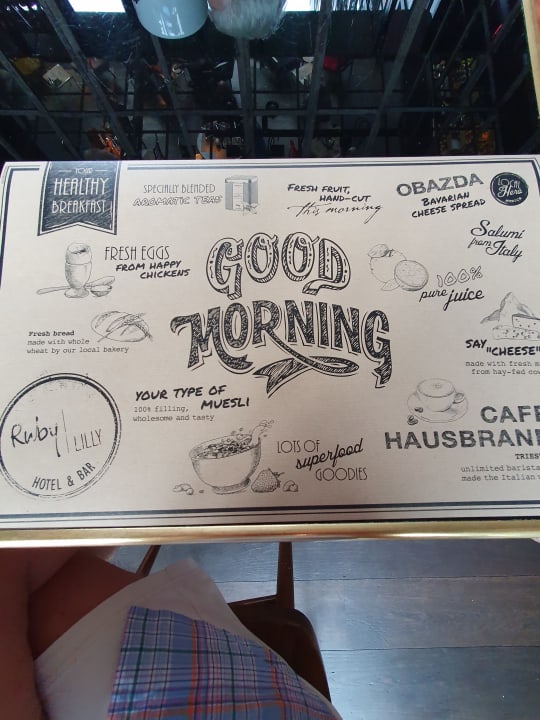 YOUR
HEALTHY
BREAKFAST
SPECIALLY BLENDED
AROMATIC TEAS
FRESH FRUIT,
HAND-CUT
this morning
OBAZDA
BAVARIAN
CHEESE SPREAD
LOCAL
Hero
Salumi
from
Italy
FRESH EGGS
FROM HAPPY
CHICKENS
GOOD
MORNING
100%
pure juice
Fresh bread
made with whole
wheat by our local bakery
SAY
"CHEESE"
made with fresh
from hay-fed
YOUR TYPE OF
MUESLI
100% filling,
wholesome and tasty
Ruby LILLY
HOTEL & BAR
LOTS OF
superfood
GOODIES
CAFF
HAUSBRAN
TRIES
unlimited barista
made the Italian